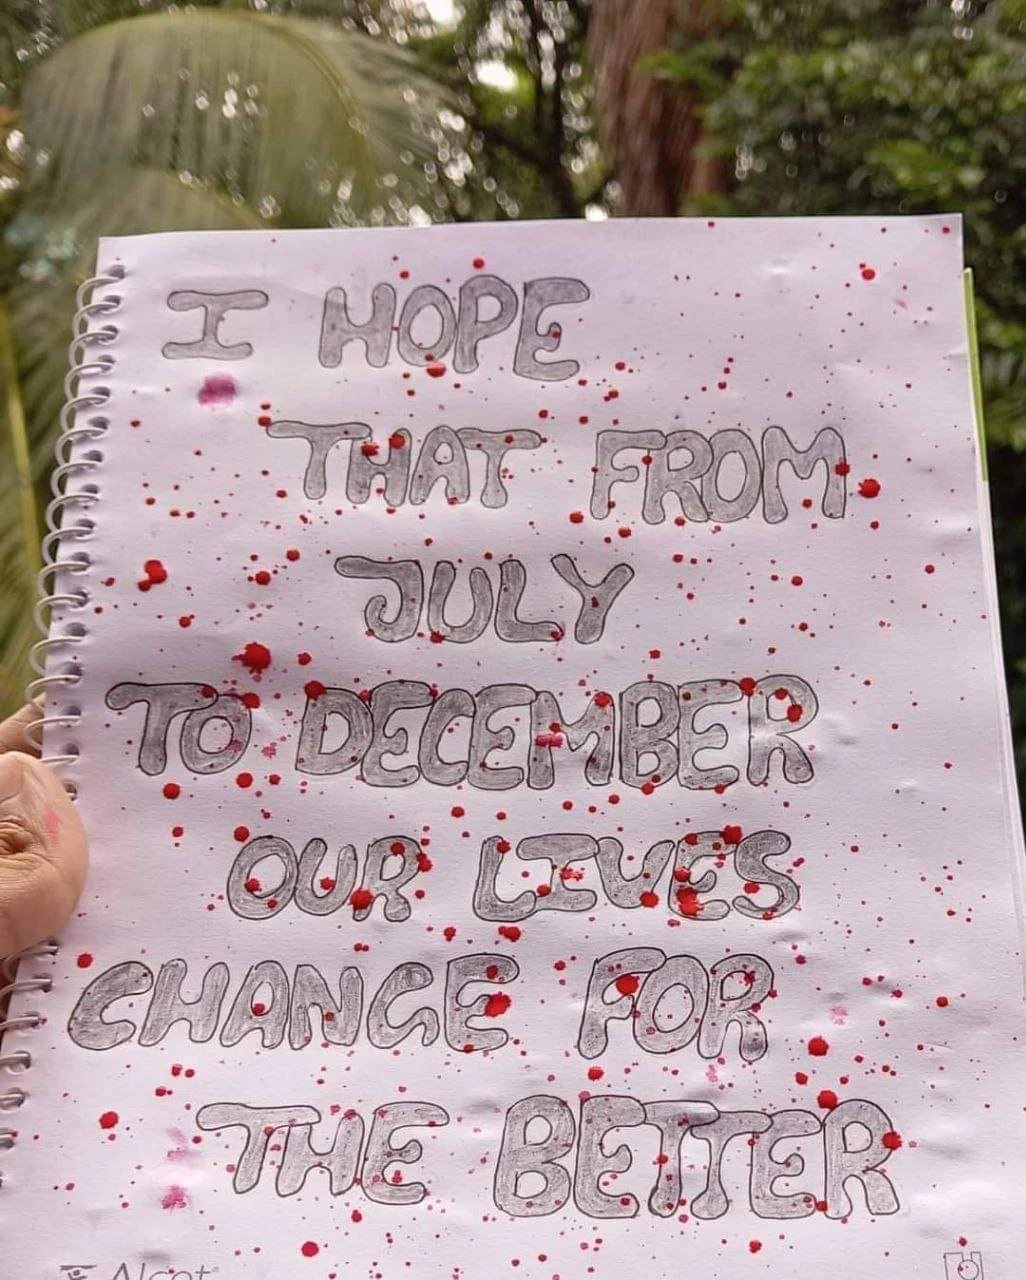 I HOPE
THAT FROM
JULY
TO DECEMBER
OUR LIVES
CHANGE FOR
THE BETTER